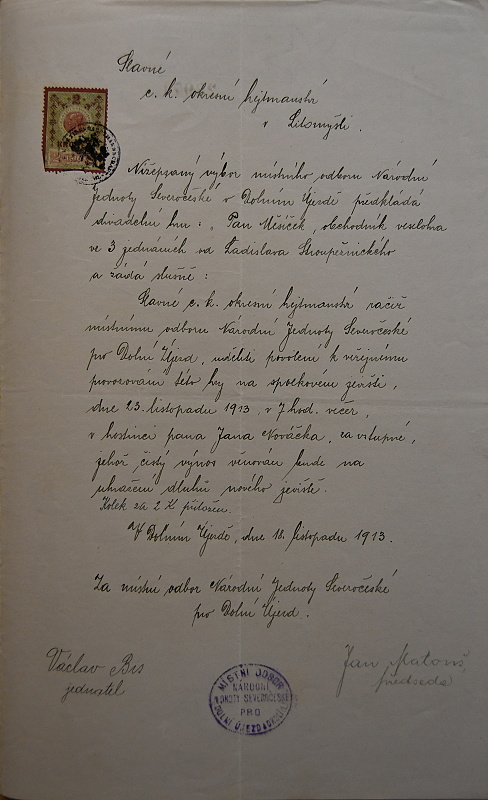 Slavné
c. k. okresní hejtmanství
v Litomyšli.
Nížepsaný výbor místního odboru Národní
Jednoty Severočeské v Dolním Újezdě předkládá
divadelní hru: „Pan Měsíček, obchodník veselohra
ve 3 jednáních od Ladislava Stroupežnického
a žádá slušně:
Slavné c. k. okresní hejtmanství račiž
místnímu odboru Národní Jednoty Severočeské
pro Dolní Újezd, uděliti povolení k veřejnému
provozování této hry na spolkovém jevišti,
dne 23. listopadu 1913, v 7 hod. večer,
v hostinci pana Jana Nováčka, za vstupné,
jehož čistý výnos věnován bude na
uhražení dluhů nového jeviště.
Kolek za 2 K přiložen.
V Dolním Újezdě, dne 18. listopadu 1913.
Za místní odbor Národní Jednoty Severočeské
pro Dolní Újezd.
Václav Brs
jednatel
Jan Matouš,
předseda
MÍSTNÍ ODBOR
NÁRODNÍ
JEDNOTY SEVEROČESKÉ
PRO
DOLNÍ ÚJEZD